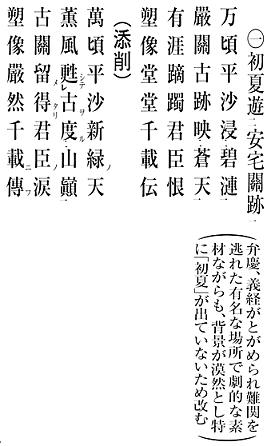 ㊀初夏遊二安宅關跡一
(弁慶、義経がとがめられ難関を
逃れた有名な場所で劇的な素
材ながらも、背景が漠然とし特
に「初夏」が出ていないため改む)
万頃平沙浸碧漣
嚴關古跡映蒼天
有涯蹢躅君臣恨
塑像堂堂千載伝
(添削)
萬頃平沙新緑ノ天
薫風甦シテヲル古度ノ山巓
古關留メ得タリ君臣ノ涙
塑像嚴然千載ニ傳フ